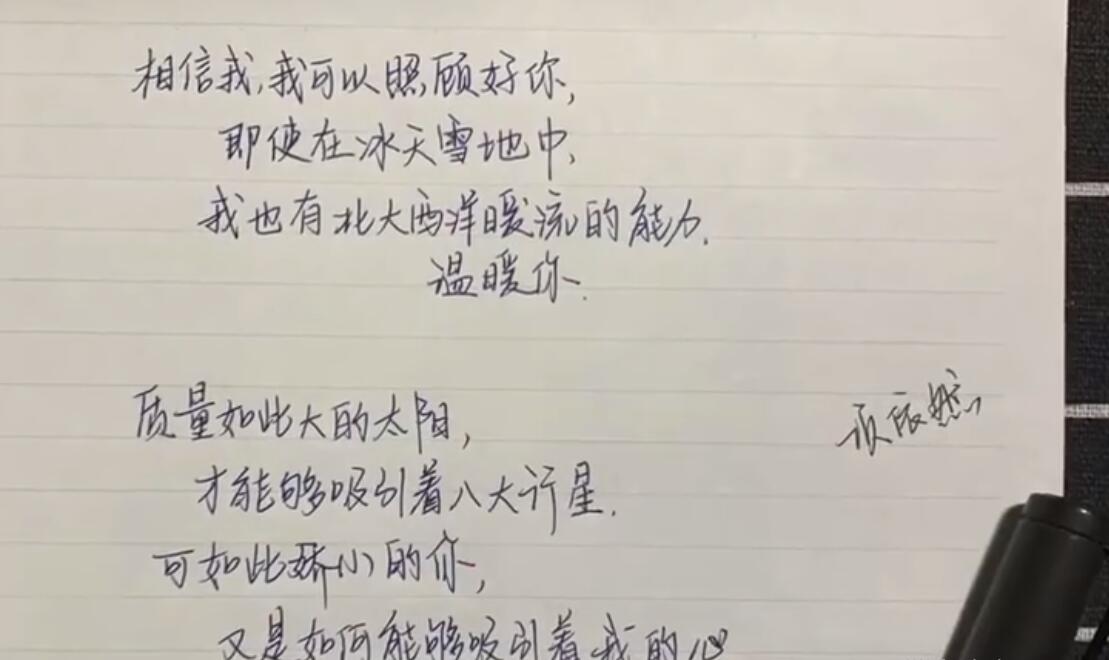 相信我,我可以照顾好你,
即使在冰天雪地中,
我也有北大西洋暖流的能力.
温暖你.
质量如此大的太阳,
才能够吸引着八大行星.
可如此娇小的你,
又是如何能够吸引着我的心